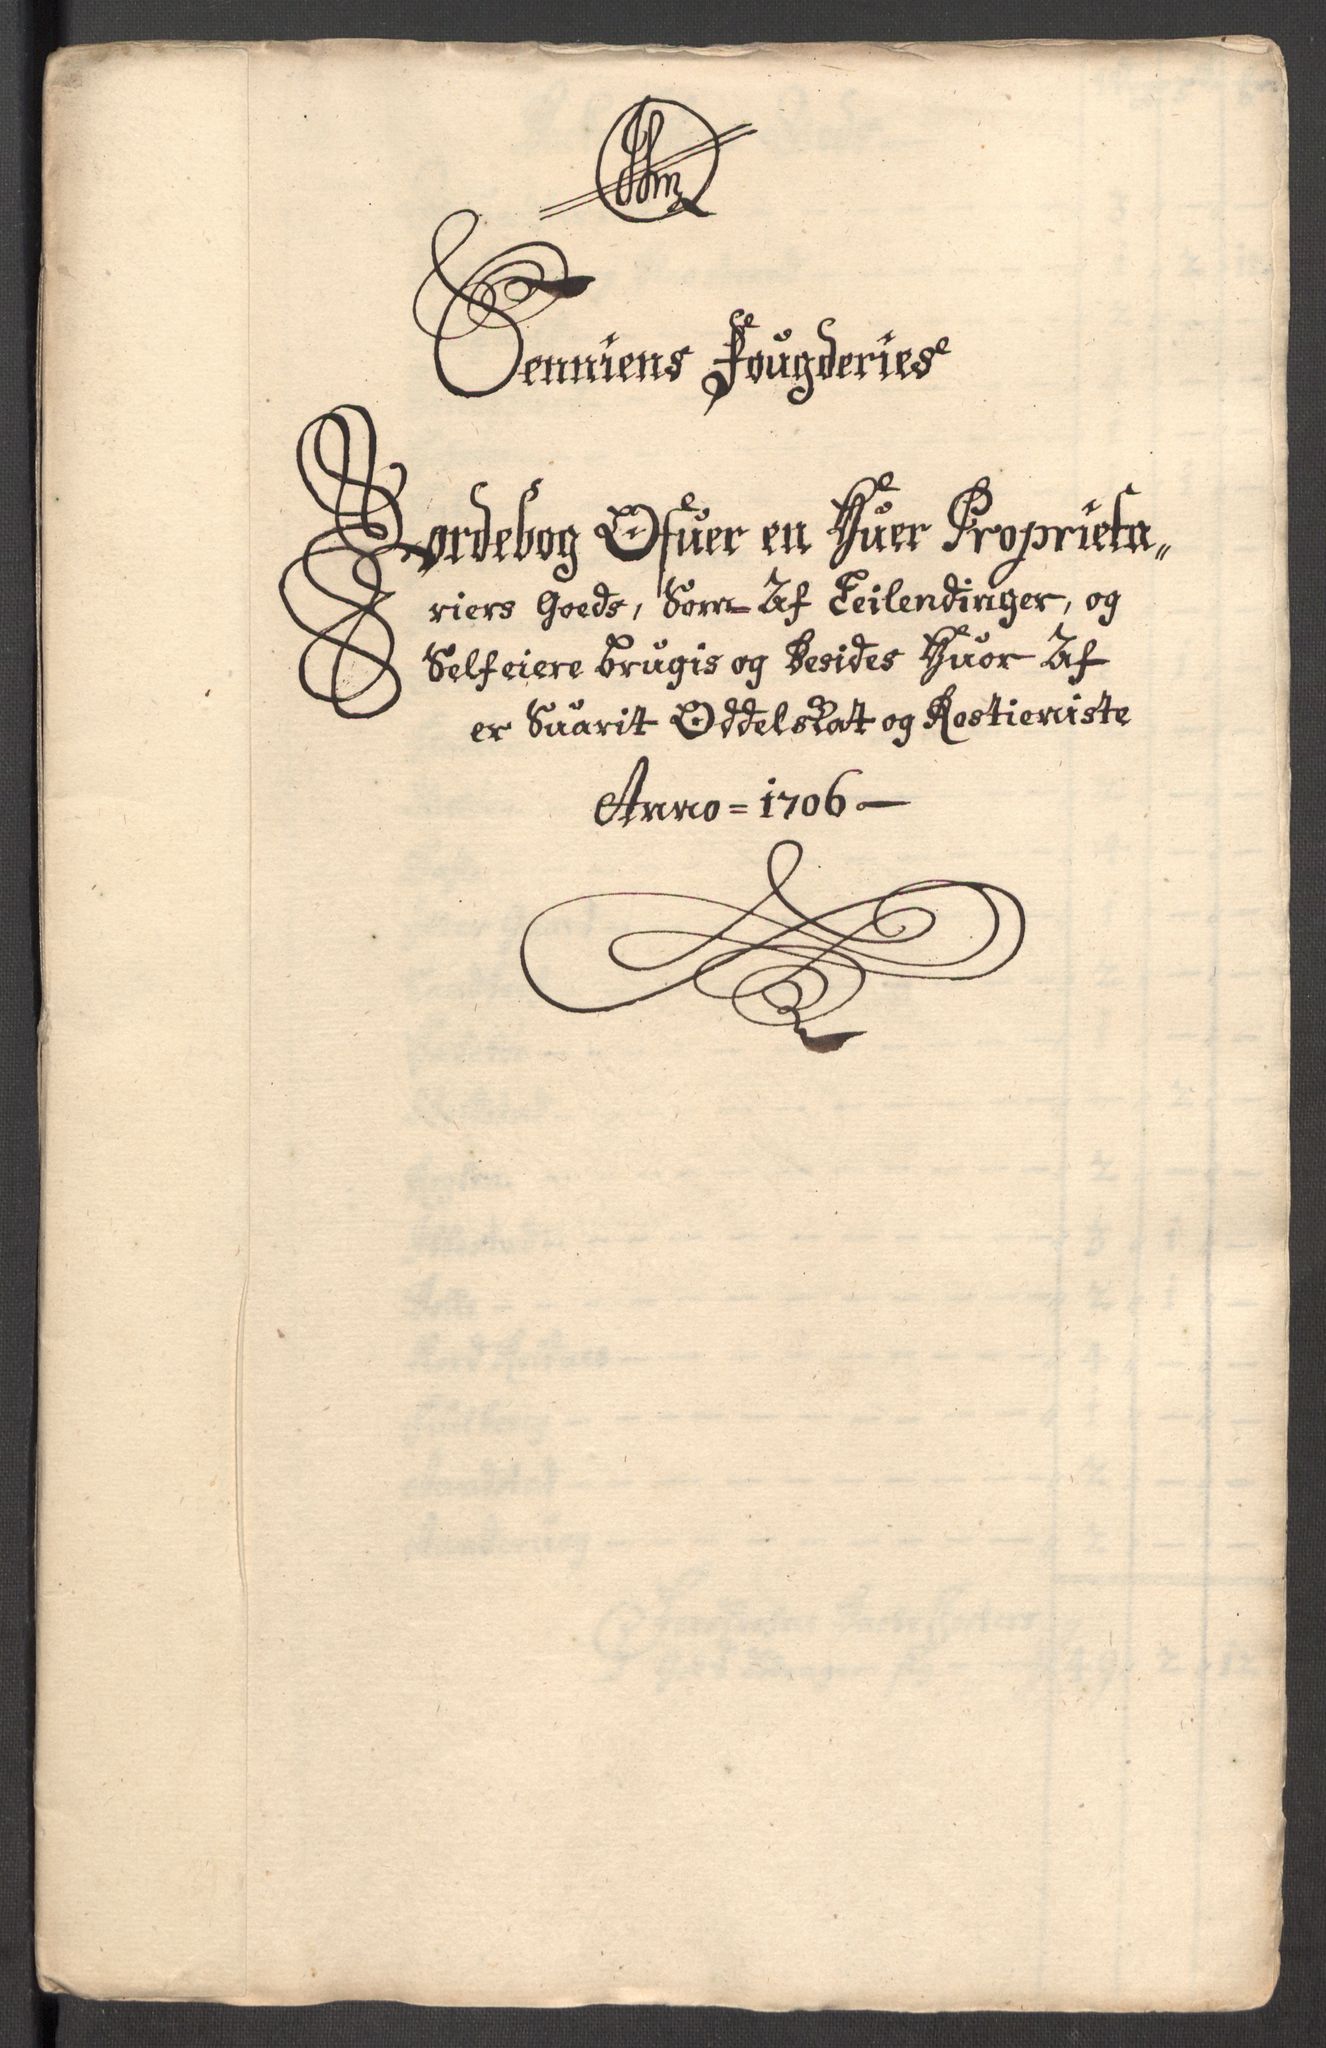 Senniens Fougderies
Jordebog Ofuer en Huer Proprieta„
riers Goeds, Som Af Leilendinger, og
Selfeiere brugis og Besides Huor Af
er Suarit Oddelskat og Rostieniste
Anno = 1706 —